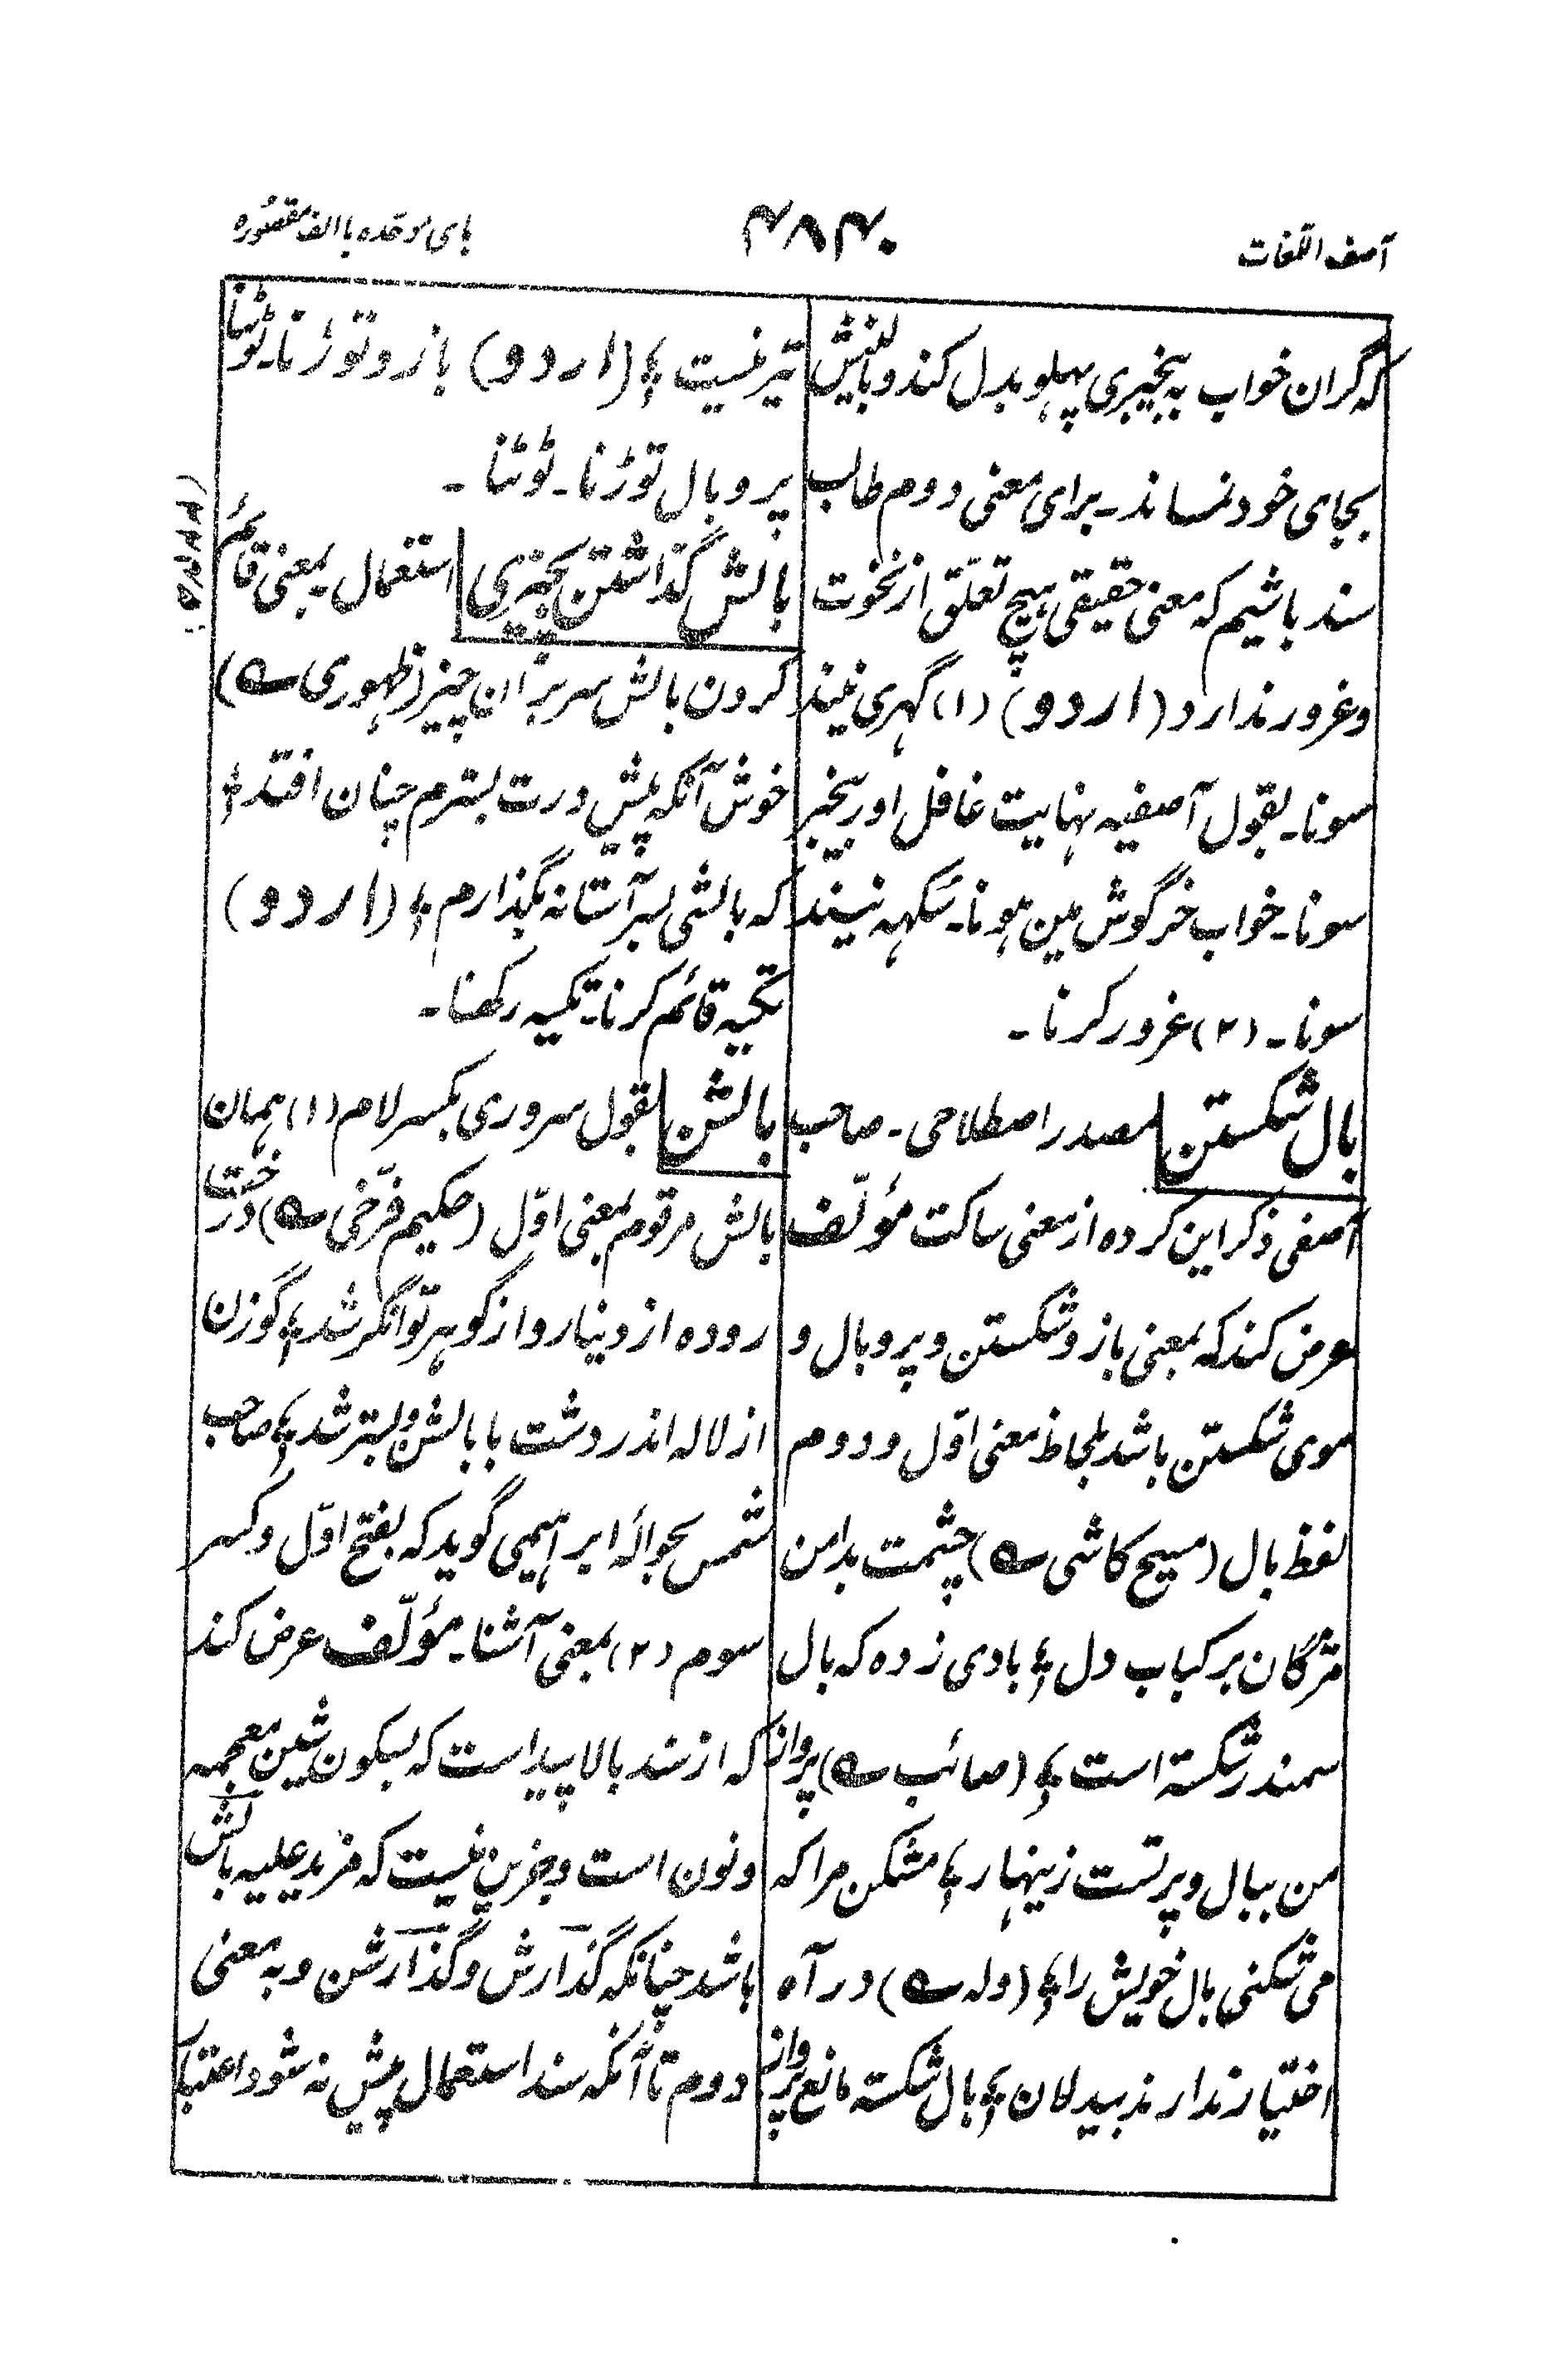 آصف اللغات
۴۸۴۰
بای موحّده با الف مقصوره
که گران خواب به بیخبری پہلو بدل کند و بالنیش
بجای خود نمیماند۔ برای معنی دوم طالب
سند باشیم که معنی حقیقی ہیچ تعلّق از نخوت
و غرور ندارد (اردو) (۱) گہری نیند
سونا۔ بقول آصفیہ نہایت غافل اور بیخبر
سونا۔ خواب خرگوش مین ہونا۔ سُکہہ نیند
سونا۔ (۲) غرور کرنا۔
بال شکستن مصدر اصطلاحی۔ صاحب
آصفی ذکر این کرده از معنی ساکت مؤلّف
عرض کند که بمعنی بازو شکستن و پر و بال و
موی شکستن باشد بلحاظ معنی اوّل و دوم
لفظ بال (مسیح کاشی ؎) چشمت بدامن
مژگان بر کباب دل ؛ بادی زده که بال
سمندر شکسته است ؛ (صائب ؎) پرواز
من ببال و پر تست زینہار ؛ مشکن مرا که
می شکنی بال خویش را ؛ (وله ؎) در آه
اختیار ندارند بیدلان ؛ بال شکسته مانع پرواز
تیر نیست ؛ (اردو) بازو توڑنا۔ ٹوٹنا
پر و بال توڑنا۔ ٹوٹنا۔
بالش گذاشتن بچیزی استعمال۔ بمعنی قائم
کردن بالش سر بر آن چیز (ظہوری ؎)
خوش آنکه پیش درت بسترم چنان افتد ؛
که بالشی بسر آستانه بگذارم ؛ (اردو)
تکیہ قائم کرنا۔ تکیہ رکھنا۔
بالشن بقول سروری بکسر لام (۱) ہمان
بالش مرقوم بمعنی اوّل (حکیم فرّخی ؎) درخت
روده از دینار و از گوہر توانگر شد ؛ گوزن
از لاله اندر دشت با بالشن و بستر شد ؛ صاحب
شمس بحوالۂ ابراہیمی گوید که بفتح اوّل و کسر
سوم (۲) بمعنی آشنا۔ مؤلّف عرض کند
که از سند بالا پیداست که بسکون شین معجمہ
و نون است و جزین نیست که مزید علیه بالش
باشد چنانکه گذارش و گذارشن و به معنی
دوم تا آنکه سند استعمال پیش نه شود اعتبار